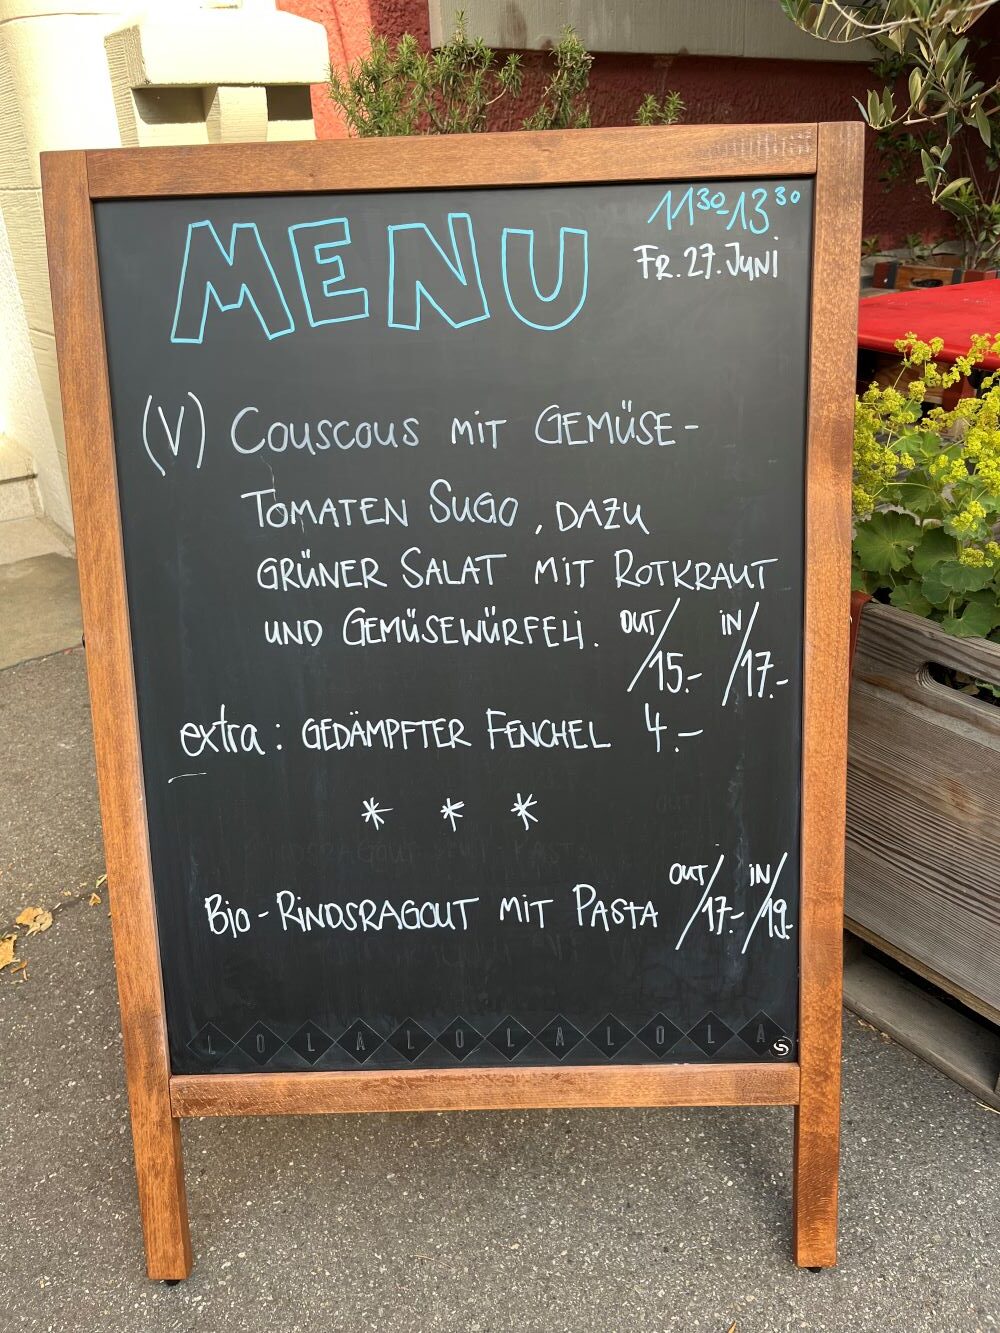 MENU
11³⁰-13³⁰
FR. 27. JUNI
(V) COUSCOUS MIT GEMÜSE-
TOMATEN SUGO, DAZU
GRÜNER SALAT MIT ROTKRAUT
UND GEMÜSEWÜRFELI. OUT/15.- IN/17.-
extra: GEDÄMPFTER FENCHEL 4.-
* * *
BIO-RINDSRAGOUT MIT PASTA OUT/17.- IN/19.-
LOLALOLALOLA